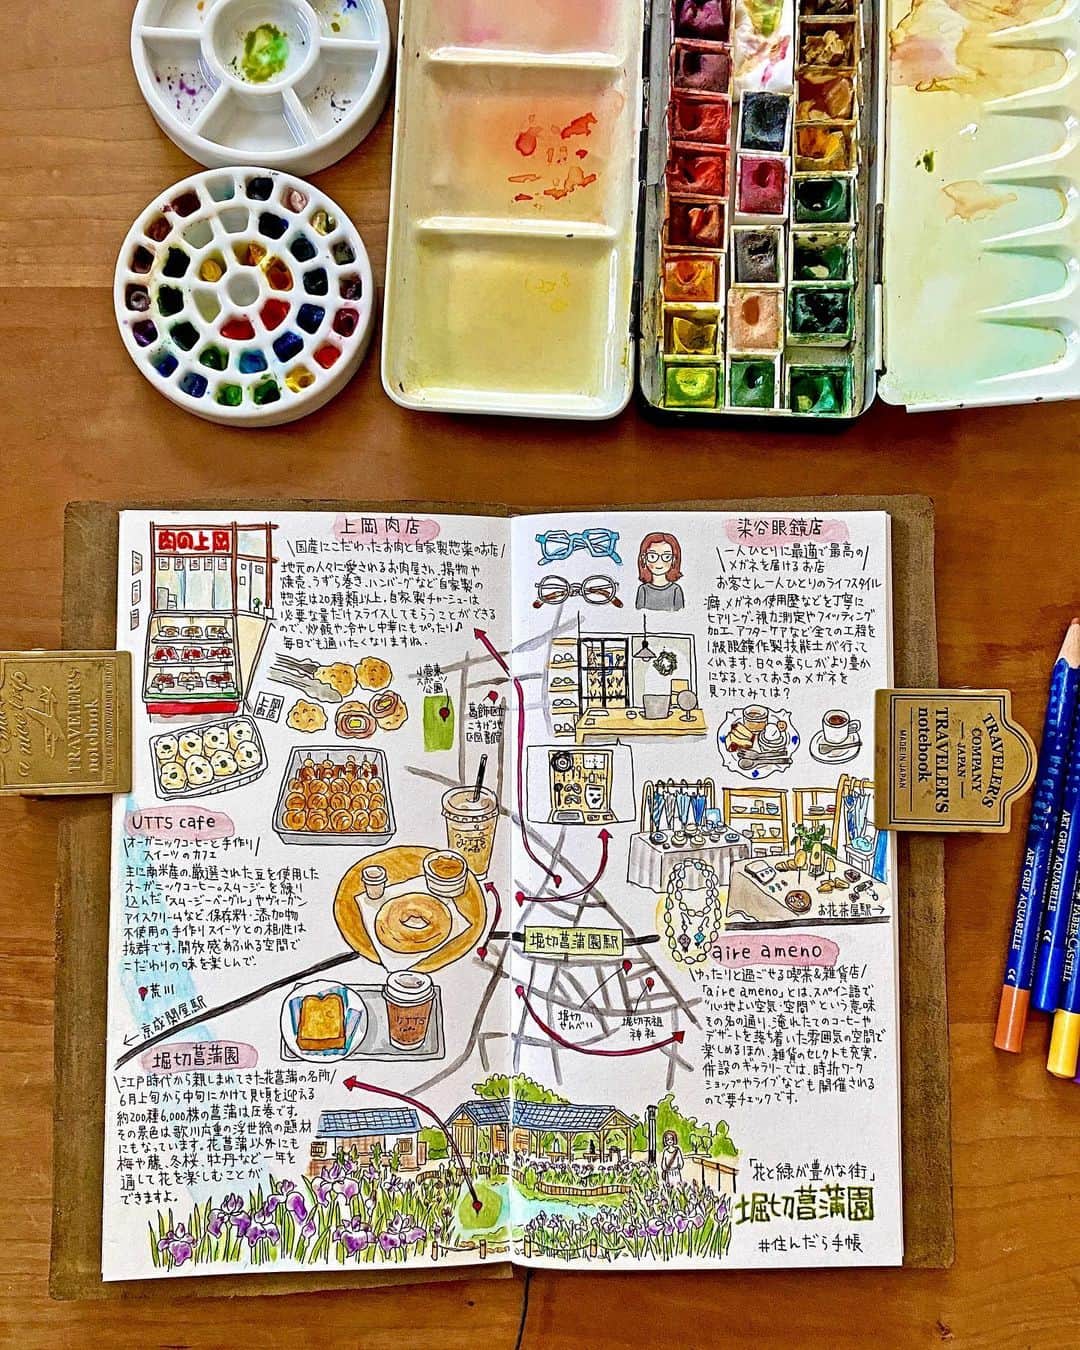 上岡肉店
国産にこだわったお肉と自家製惣菜のお店
地元の人々に愛されるお肉屋さん。揚物や
焼売、うずら巻き、ハンバーグなど自家製の
惣菜は20種類以上。自家製チャーシューは
必要な量だけスライスしてもらうことができる
ので、炒飯や冷やし中華にもぴったり♪
毎日でも通いたくなりますね。
肉の上岡
上岡肉店
小菅東
スポーツ
公園
葛飾区立
こすげ地
区図書館
UTTS cafe
オーガニックコーヒーと手作り
スイーツのカフェ
主に南米産の厳選された豆を使用した
オーガニックコーヒー。スムージーを練り
込んだ「スムージーベーグル」やヴィーガン
アイスクリームなど、保存料・添加物
不使用の手作りスイーツとの相性は
抜群です。開放感あふれる空間で
こだわりの味を楽しんで。
荒川
←京成関屋駅
堀切菖蒲園
江戸時代から親しまれてきた花菖蒲の名所
6月上旬から中旬にかけて見頃を迎える
約200種6,000株の菖蒲は圧巻です。
その景色は歌川広重の浮世絵の題材
にもなっています。花菖蒲以外にも
梅や藤、冬桜、牡丹など一年を
通して花を楽しむことが
できますよ。
染谷眼鏡店
一人ひとりに最適で最高の
メガネを届けるお店
お客さん一人ひとりのライフスタイル
癖、メガネの使用歴などを丁寧に
ヒアリング。視力測定やフィッティング
加工、アフターケアなど全ての工程を
1級眼鏡作製技能士が行って
くれます。日々の暮らしがより豊か
になる、とっておきのメガネを
見つけてみては？
お花茶屋駅→
堀切菖蒲園駅
堀切
せんべい
堀切天祖
神社
aire ameno
ゆったりと過ごせる喫茶&雑貨店
「aire ameno」とは、スペイン語で
"心地よい空気・空間"という意味
その名の通り、淹れたてのコーヒーや
デザートを落ち着いた雰囲気の空間で
楽しめるほか、雑貨のセレクトも充実。
併設のギャラリーでは、時折ワーク
ショップやライブなども開催される
ので要チェックです。
「花と緑が豊かな街」
堀切菖蒲園
#住んだら手帳
TRAVELER'S
notebook
TRAVELER'S
COMPANY
JAPAN
TRAVELER'S
notebook
MADE IN JAPAN
ART GRIP AQUARELLE
ART GRIP AQUARELLE
FABER-CASTELL